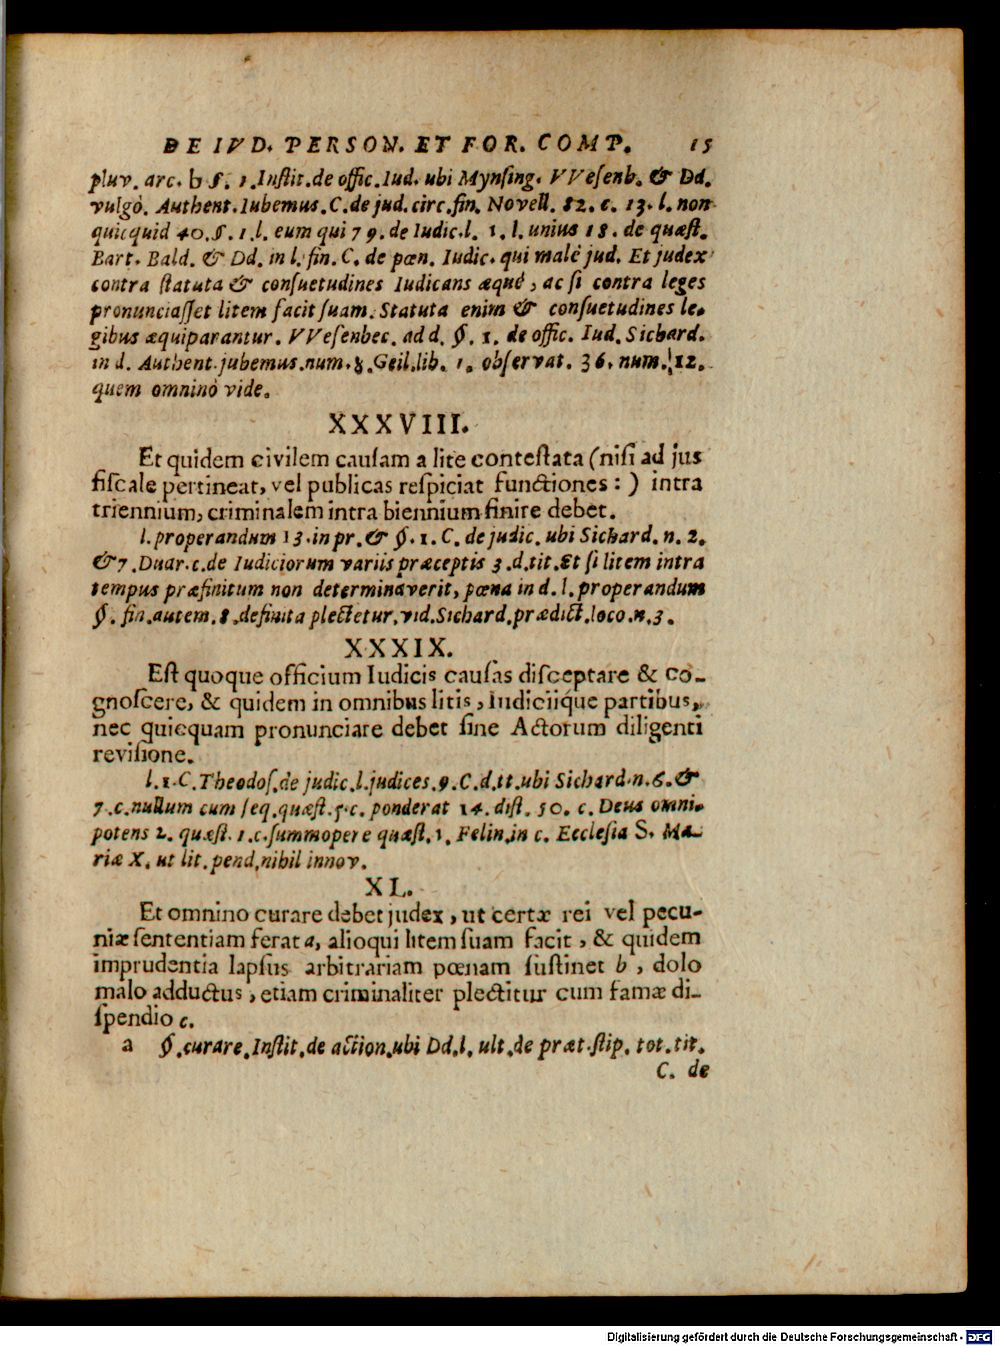 DE IVD. PERSON. ET FOR. COMP. 15
pluv. arc. b §. 1. Instit. de offic. Iud. ubi Mynsing. VVesenb. & Dd.
vulgò. Authent. Iubemus. C. de jud. circ. fin. Novell. 82. c. 13. l. non
quicquid 40. §. 1. l. eum qui 79. de Iudic. l. 1. l. unius 18. de quæst.
Bart. Bald. & Dd. in l. fin. C. de pœn. Iudic. qui malè jud. Et judex
contra statuta & consuetudines Iudicans æquè, ac si contra leges
pronunciasset litem facit suam. Statuta enim & consuetudines le-
gibus æquiparantur. VVesenbec. ad d. §. 1. de offic. Iud. Sichard.
in d. Authent. jubemus. num. 8. Geil. lib. 1. observat. 36. num. 12.
quem omninò vide.
XXXVIII.
Et quidem civilem causam a lite contestata (nisi ad jus
fiscale pertineat, vel publicas respiciat functiones: ) intra
triennium, criminalem intra biennium finire debet.
l. properandum 13. in pr. & §. 1. C. de judic. ubi Sichard. n. 2.
& 7. Duar. c. de Iudiciorum variis præceptis 3. d. tit. Et si litem intra
tempus præfinitum non determinaverit, pœna in d. l. properandum
§. fin. autem. 8. definita plectetur, vid. Sichard. prædict. loco. n. 3.
XXXIX.
Est quoque officium Iudicis causas disceptare & co-
gnoscere, & quidem in omnibus litis, Iudiciiq́ue partibus,
nec quicquam pronunciare debet sine Actorum diligenti
revisione.
l. 1. C. Theodos. de judic. l. judices. 9. C. d. tt. ubi Sichard. n. 6. &
7. c. nullum cum seq. quæst. 5. c. ponderat 14. dist. 50. c. Deus omni-
potens 2. quæst. 1. c. summopere quæst. 1. Felin. in c. Ecclesia S. Ma-
riæ X. ut lit. pend. nihil innov.
XL.
Et omnino curare debet judex, ut certæ rei vel pecu-
niæ sententiam ferat a, alioqui litem suam facit, & quidem
imprudentia lapsus arbitrariam pœnam sustinet b, dolo
malo adductus, etiam criminaliter plectitur cum famæ di-
spendio c.
a §. curare. Instit. de action. ubi Dd. l. ult. de præt. stip. tot. tit.
C. de
Digitalisierung gefördert durch die Deutsche Forschungsgemeinschaft - DFG